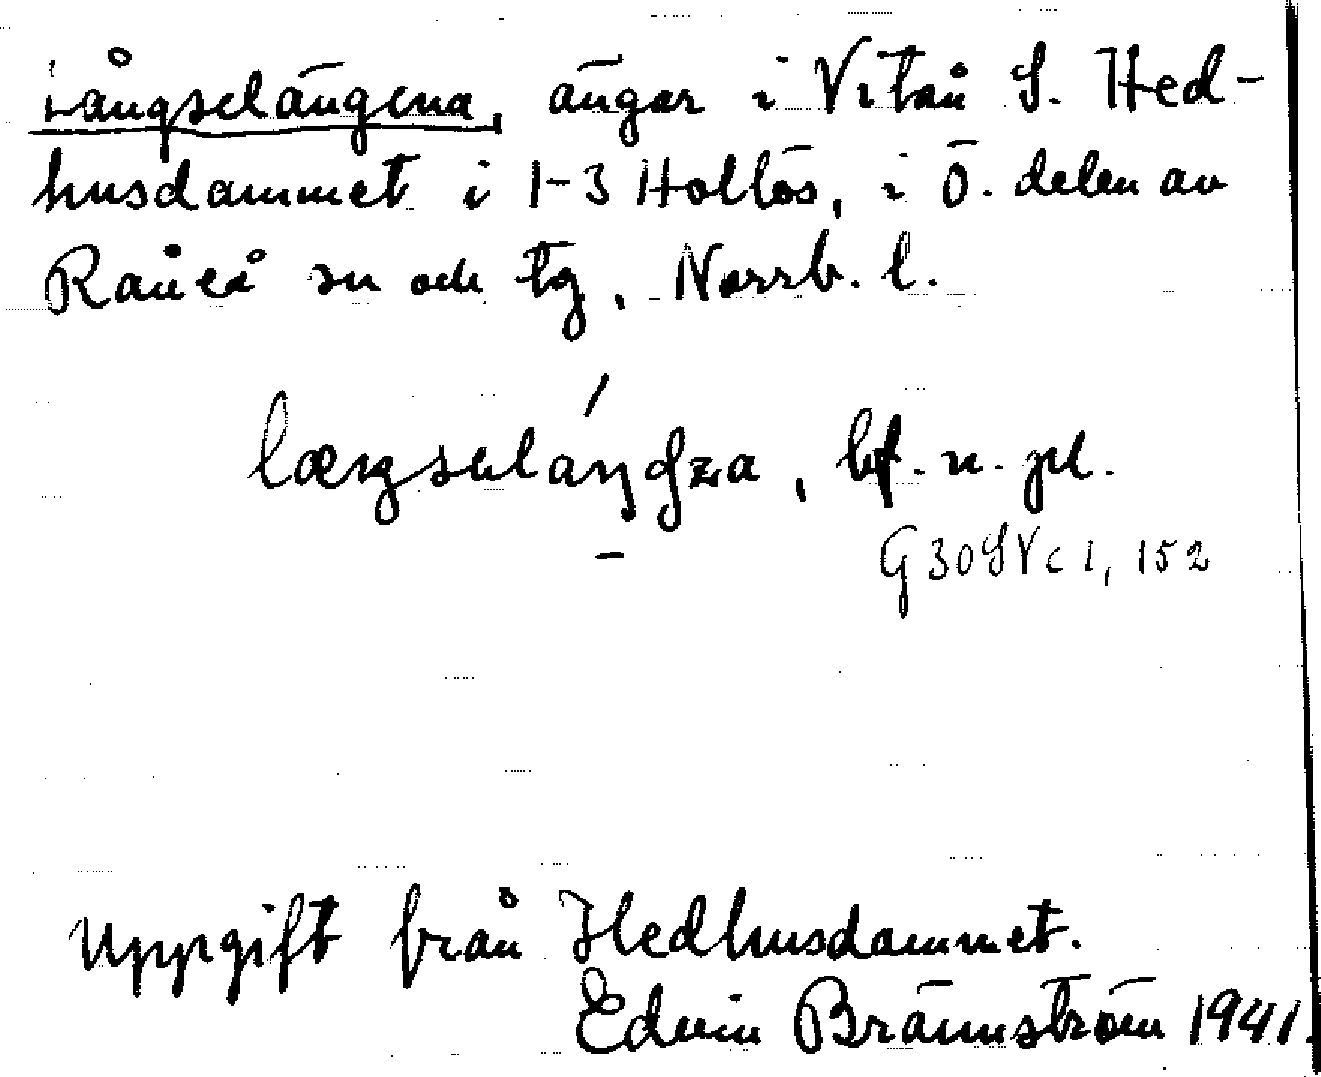 Långselängena, ängar i Vitån S. Hed-
husdammet i 1-3 Hollös, i Ö. delen av
Råneå sn och tg, Norrb. l.
bf. n. pl.
G30SVc1, 152
Uppgift från Hedhusdammet.
Edvin Brännström 1941.